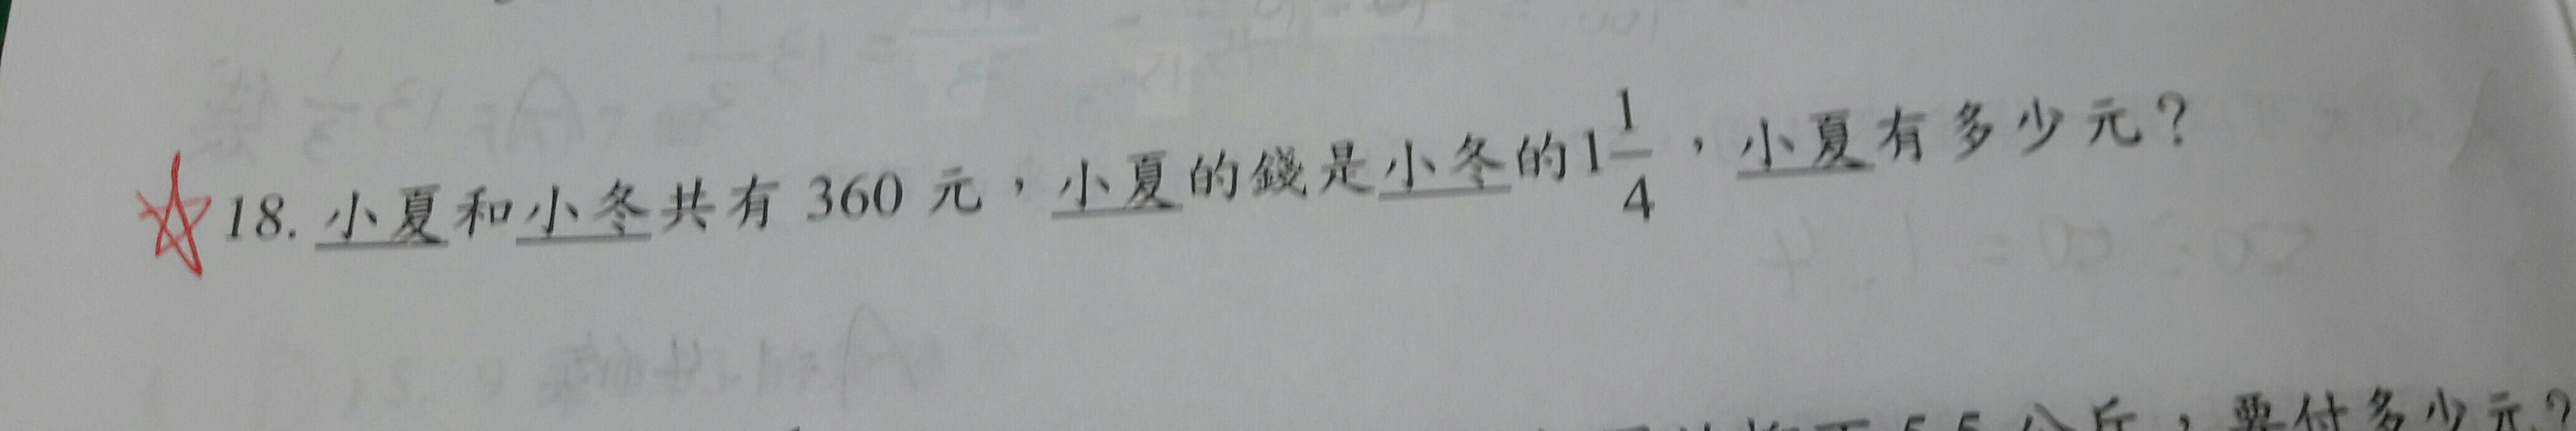 18. 小夏和小冬共有 360 元，小夏的錢是小冬的1 1/4，小夏有多少元？
5.5 公斤，要付多少元？